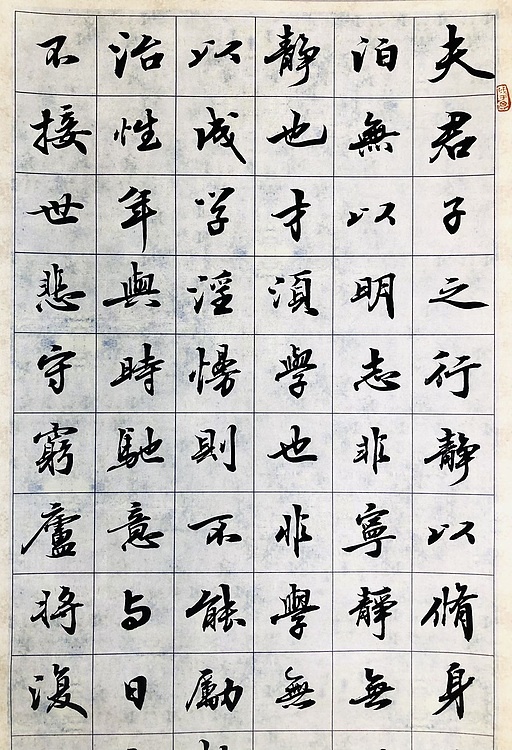 夫君子之行靜以脩身
泊無以明志非寧靜無
靜也才須學也非學無
以成学淫慢則不能勵
治性年與時馳意与日
不接世悲守窮廬将復